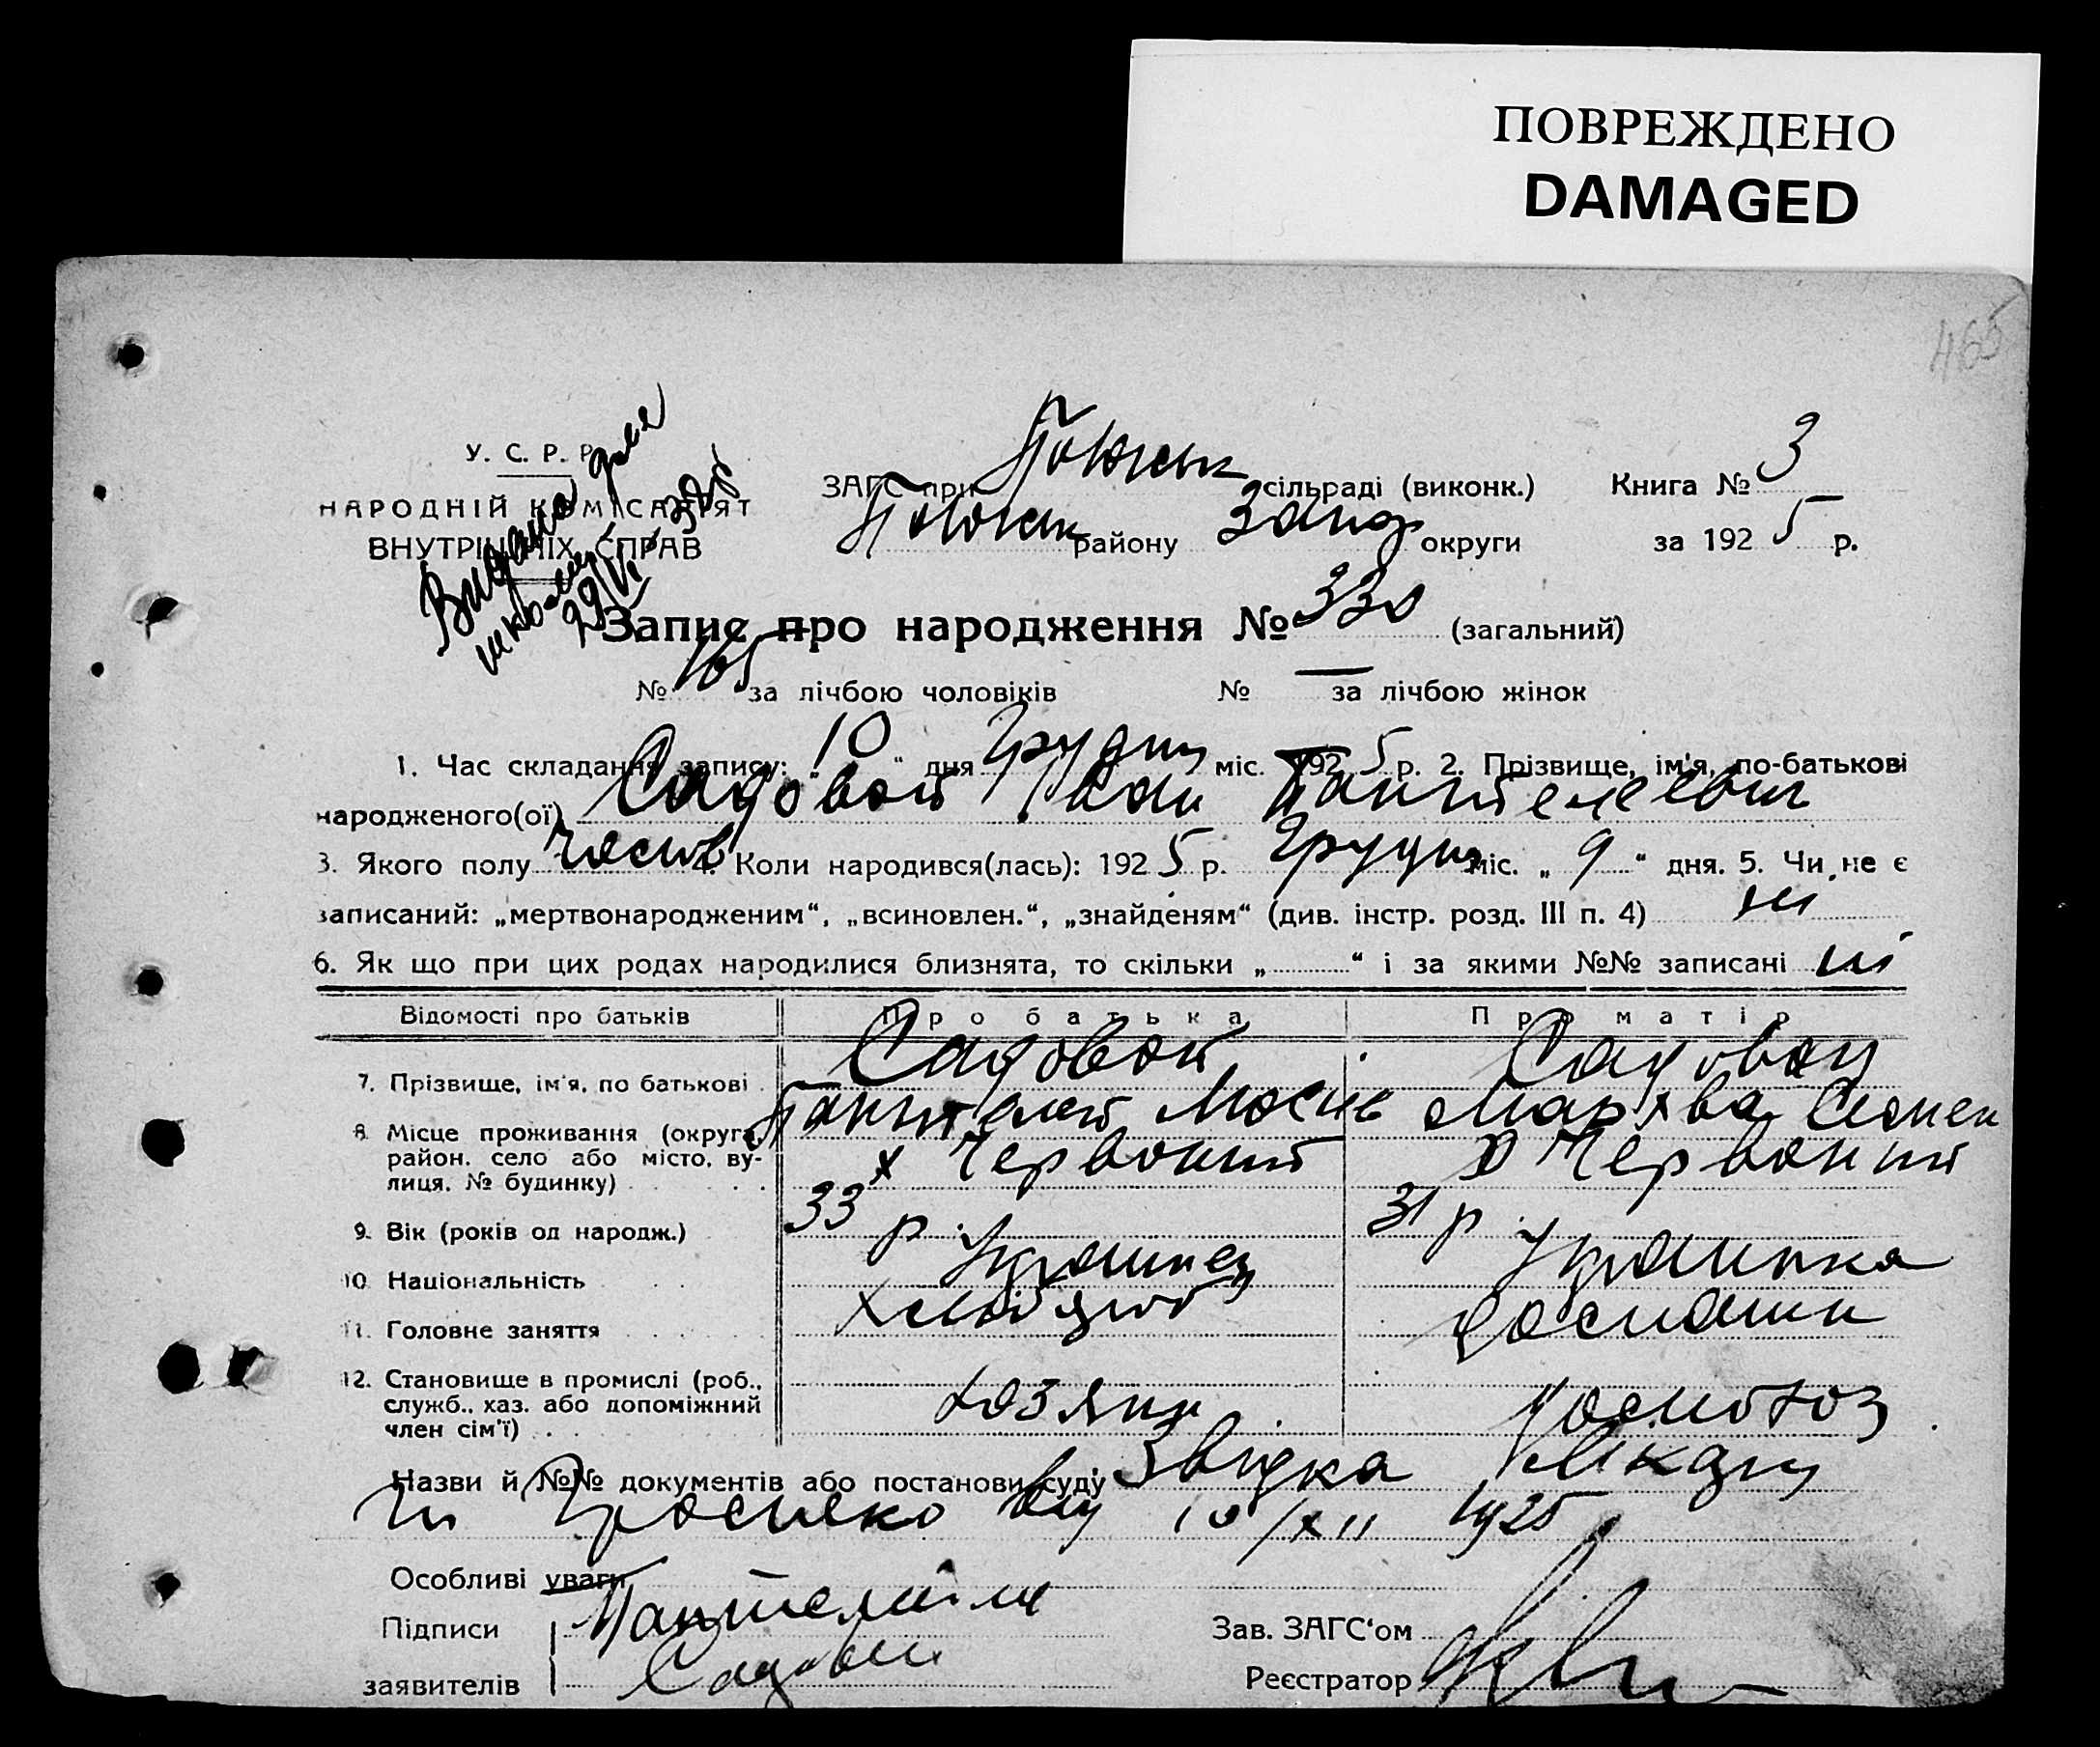 ПОВРЕЖДЕНО
DAMAGED
465
У. С. Р. Р.
НАРОДНІЙ КОМІСАРІЯТ
ВНУТРІШНІХ СПРАВ
Видана для
школи
29/VI 33р
ЗАГС при сільраді (виконк.) Книга № 3
району Запор округи за 1925 р.
Запис про народження № 330 (загальний)
№ 165 за лічбою чоловіків № — за лічбою жінок
1. Час складання запису: „10“ дня Грудня міс. 1925 р. 2. Прізвище, ім'я, по-батькові
народженого(ої) Садовой Іван Пантелеевич
3. Якого полу Чолов 4. Коли народився(лась): 1925 р. Грудня міс. „9“ дня. 5. Чи не є
записаний: „мертвонародженим“, „всиновлен.“, „знайденям“ (див. інстр. розд. III п. 4) ні
6. Як що при цих родах народилися близнята, то скільки „ “ і за якими №№ записані ні
Відомості про батьків Про батька Про матір
7. Прізвище, ім'я, по батькові Садовой Садовая
Пантелей Мосиев Марфва Семен
8. Місце проживання (округа, район, село або місто, вулиця, № будинку) х Червоний х Червоний
9. Вік (років од народж.) 33 р 31 р
10. Національність Українец Українка
11. Головне заняття Хлібороб
12. Становище в промислі (роб., служб., хаз. або допоміжний член сім'ї) Хозяин
Назви й №№ документів або постанови суду: Звідка
від 10/XII 1925
Особливі уваги
Підписи Пантелей
заявителів Садовой
Зав. ЗАГС'ом
Реєстратор